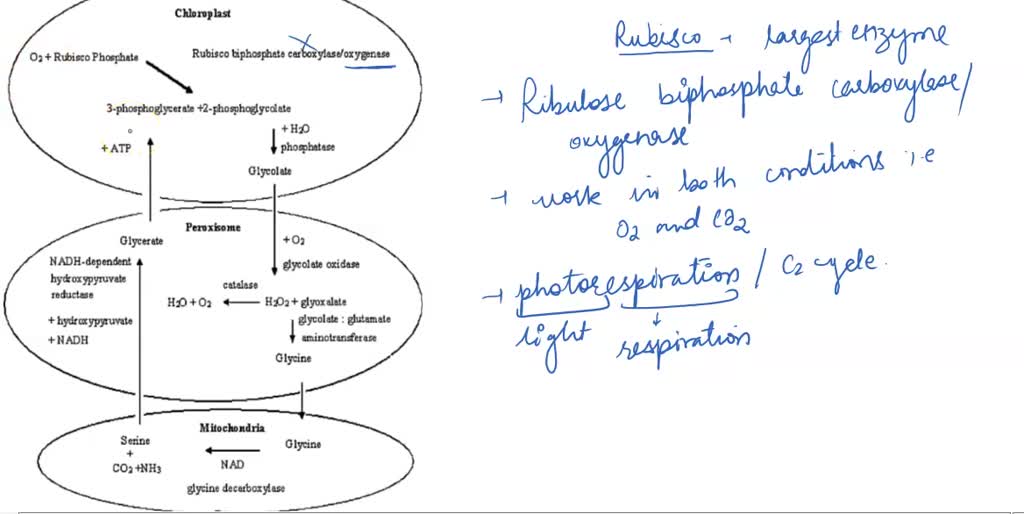 Chloroplast
O2 + Rubisco Phosphate
Rubisco biphosphate carboxylase/oxygenase
3-phosphoglycerate +2-phosphoglycolate
+ ATP
+ H2O
phosphatase
Glycolate
Peroxisome
Glycerate
+ O2
NADH-dependent
hydroxypyruvate
reductase
glycolate oxidase
catalase
H2O + O2
H2O2 + glyoxalate
+ hydroxypyruvate
+ NADH
glycolate : glutamate
aminotransferase
Glycine
Mitochondria
Serine
+
CO2 +NH3
Glycine
NAD
glycine decarboxylase
Rubisco → largest enzyme
→ Ribulose biphosphate carboxylase/
oxygenase
→ work in both conditions i.e
O2 and CO2
→ photorespiration / C2 cycle.
light respiration